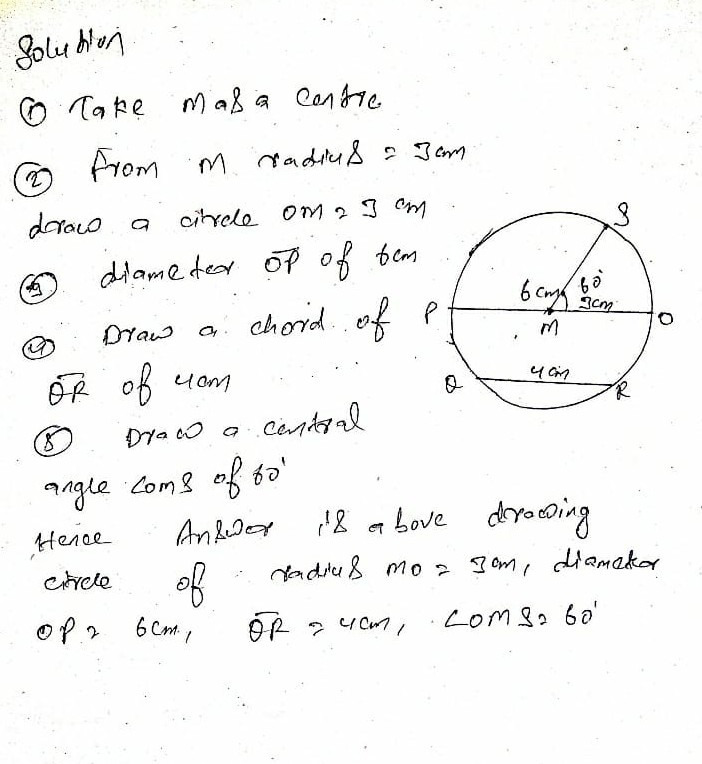 Solution
① Take M as a Centre
② From M radius = 3cm
draw a circle OM = 3 cm
③ diameter OP of 6cm
④ Draw a chord of
QR of 4cm
⑤ Draw a central
angle ∠OMS of 60°
Hence Answer is above drawing
circle of radius MO = 3cm, diameter
OP = 6cm, QR = 4cm, ∠OMS = 60°
S
6cm 60°
3cm
P M O
4cm
Q R